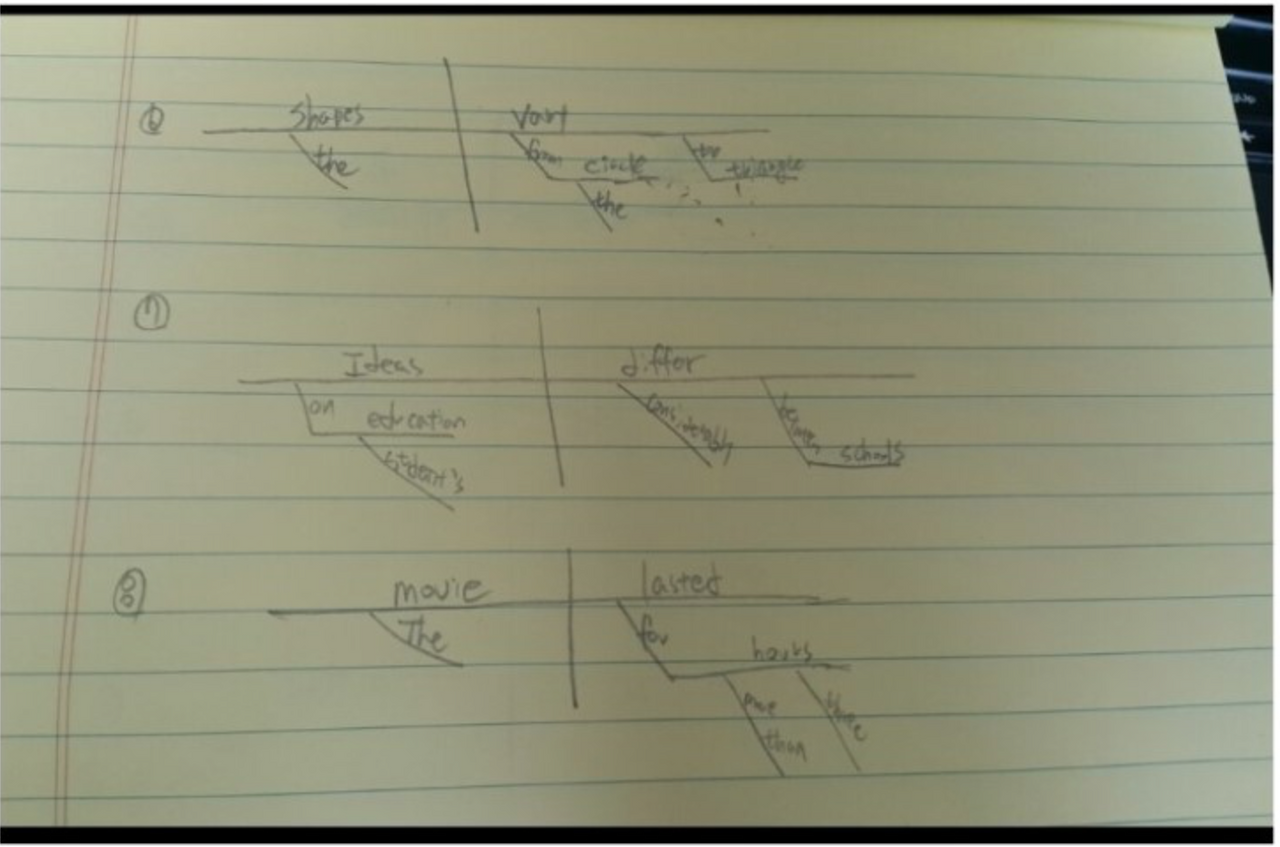 ⑥ Shapes vary
the from circle to triangle
the
⑦
Ideas differ
on education considerably between schools
student's
⑧ movie lasted
The for hours
more than three